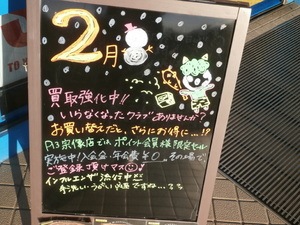 2月
買取強化中!!
いらなくなったクラブありませんか?
お買い替えだと、さらにお得に...!?
宗像店では、ポイント会員様限定セール
実施中!入会金・年会費¥0 その場で
ご登録頂けマス
インフルエンザ流行中
手洗い・うがい必要ですね...